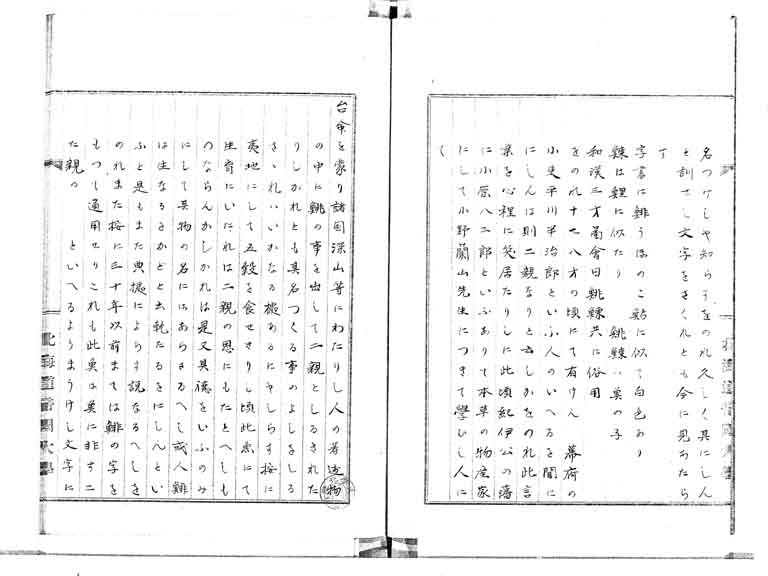 名つけしや知らすをのれ久しく具にしん
と訓せし文字をさくれとも今に見あたら
す
字書に鯡うをのこ鮎に似て白色あり
鰊は鯉に似たり　鯡鰊は魚の子
和漢三才啚會曰鯡鰊共に俗用
をのれ十七八才の頃にて有けん　幕府の
小吏平川半治郎といふ人のいへるを聞に
にしんは則二親なりと云しかをのれ此言
葉を心裡に笑居たりしに此頃紀伊公の藩
に小原八三郎といふありて本草の物産家
にして小野蘭山先生につきて學ひし人に
く
台命を蒙り諸国深山等にわたりし人の著述物
の中に鯡の事を出して二親としるされた
りしかれとも其名つくる事のよしをしる
さゝれいいかなる據あるにやしらす按に
夷地にして五穀を食せさりし頃此魚にて
生育にいたれは二親の恩にもたとへしも
のならんかしかれは是又其徳をいふのみ
にして具物の名にはあらさるへし或人鯡
は生なるをかどと云乾たるをにしんとい
ふと是もまた典據によらす説なるへしを
のれまた按に三十年以前まては鯡の字を
もつて通用せりこれも此魚は魚に非す二
た親の　　といへるよりまうけし文字に
北海道帝国大學